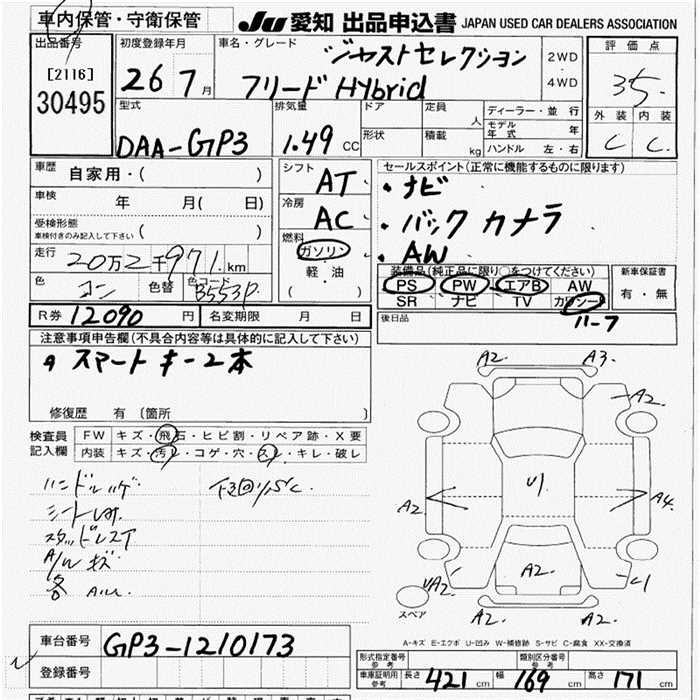 車内保管・守衛保管 JU 愛知 出品申込書 JAPAN USED CAR DEALERS ASSOCIATION
出品番号 [2116] 30495
初度登録年月 26 7月
車名・グレード ジャストセレクション
フリード Hybrid
2WD・4WD
評価点 3.5
外装 内装
C C
型式 DAA-GP3
排気量 1.49 CC
ドア 形状
定員 人
積載 kg
ディーラー・並行
モデル年式 年
ハンドル 左・右
車歴 自家用・( )
車検 年 月( 日)
受検形態 ( )
車検付きのみ記入して下さい
走行 20万2千971km
色 コン 色替 色コード B553P
シフト AT
冷房 AC
燃料 ガソリン・軽・油
( )
セールスポイント(正常に機能するものに限ります)
・ナビ
・バック カメラ
・AW
装備品(純正品に限り○をつけてください)
PS PW エアB AW
SR ナビ TV カワシート
新車保証書
有・無
R券 12090円 名変期限 月 日
後日品 11-7
注意事項申告欄(不具合内容等は具体的に記入して下さい)
スマートキー2本
修復歴 有 〔箇所 〕
検査員記入欄
FW キズ・飛石・ヒビ割・リペア跡・X要
内装 キズ・汚れ・コゲ・穴・スレ・キレ・破レ
ハンドルハゲ
スタッドレス
A/W キズ
A2. A3.
A2.
A2 U1 A4.
A2. A2.
A2. A2.
スペア
A-キズ E-エクボ U-凹み W-補修跡 S-サビ C-腐食 XX-交換済
車台番号 GP3-1210173
登録番号
形式指定番号 参考
類別区分番号 参考
車庫証明用 参考 長さ 421cm 幅 169cm 高さ 171cm